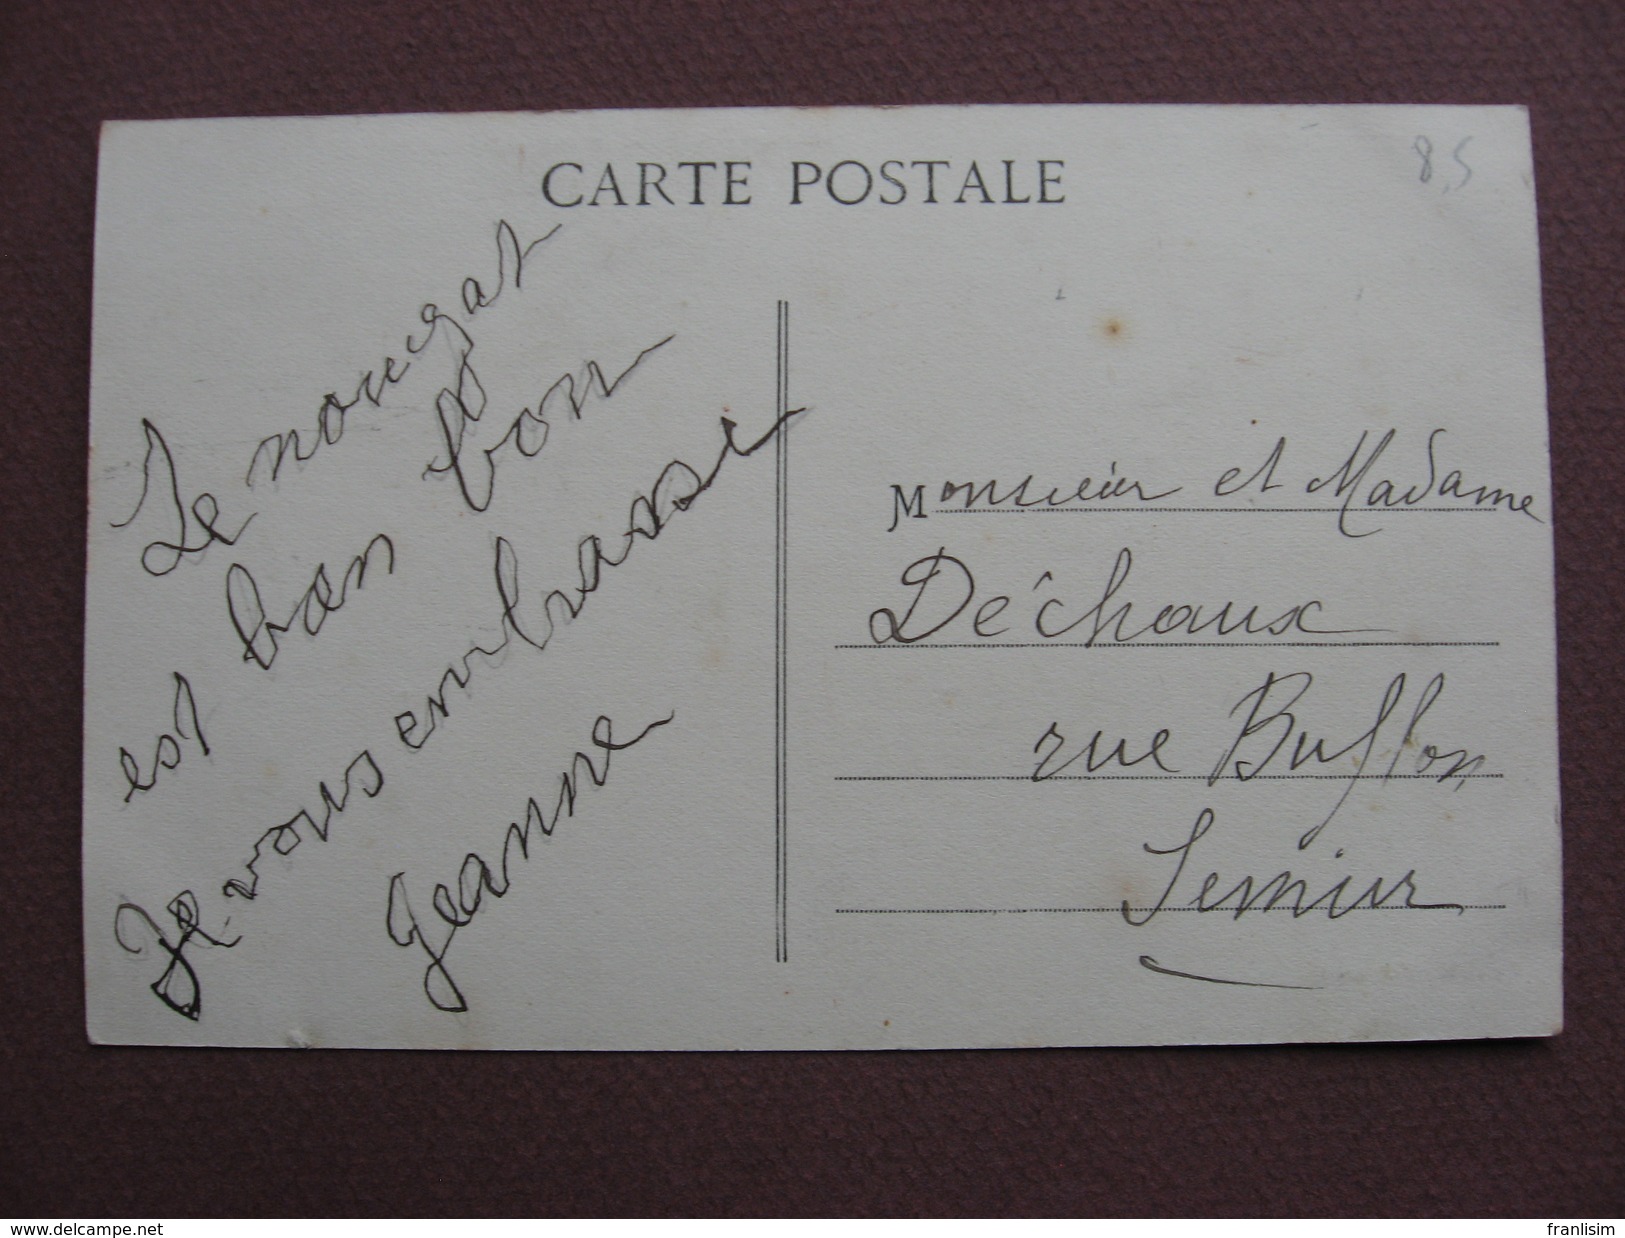 CARTE POSTALE
8,5
Le nougat
est bon bon
Je vous embrasse
Jeanne
Monsieur et Madame
Déchaux
rue Buffon
Semur
www.delcampe.net
franlisim